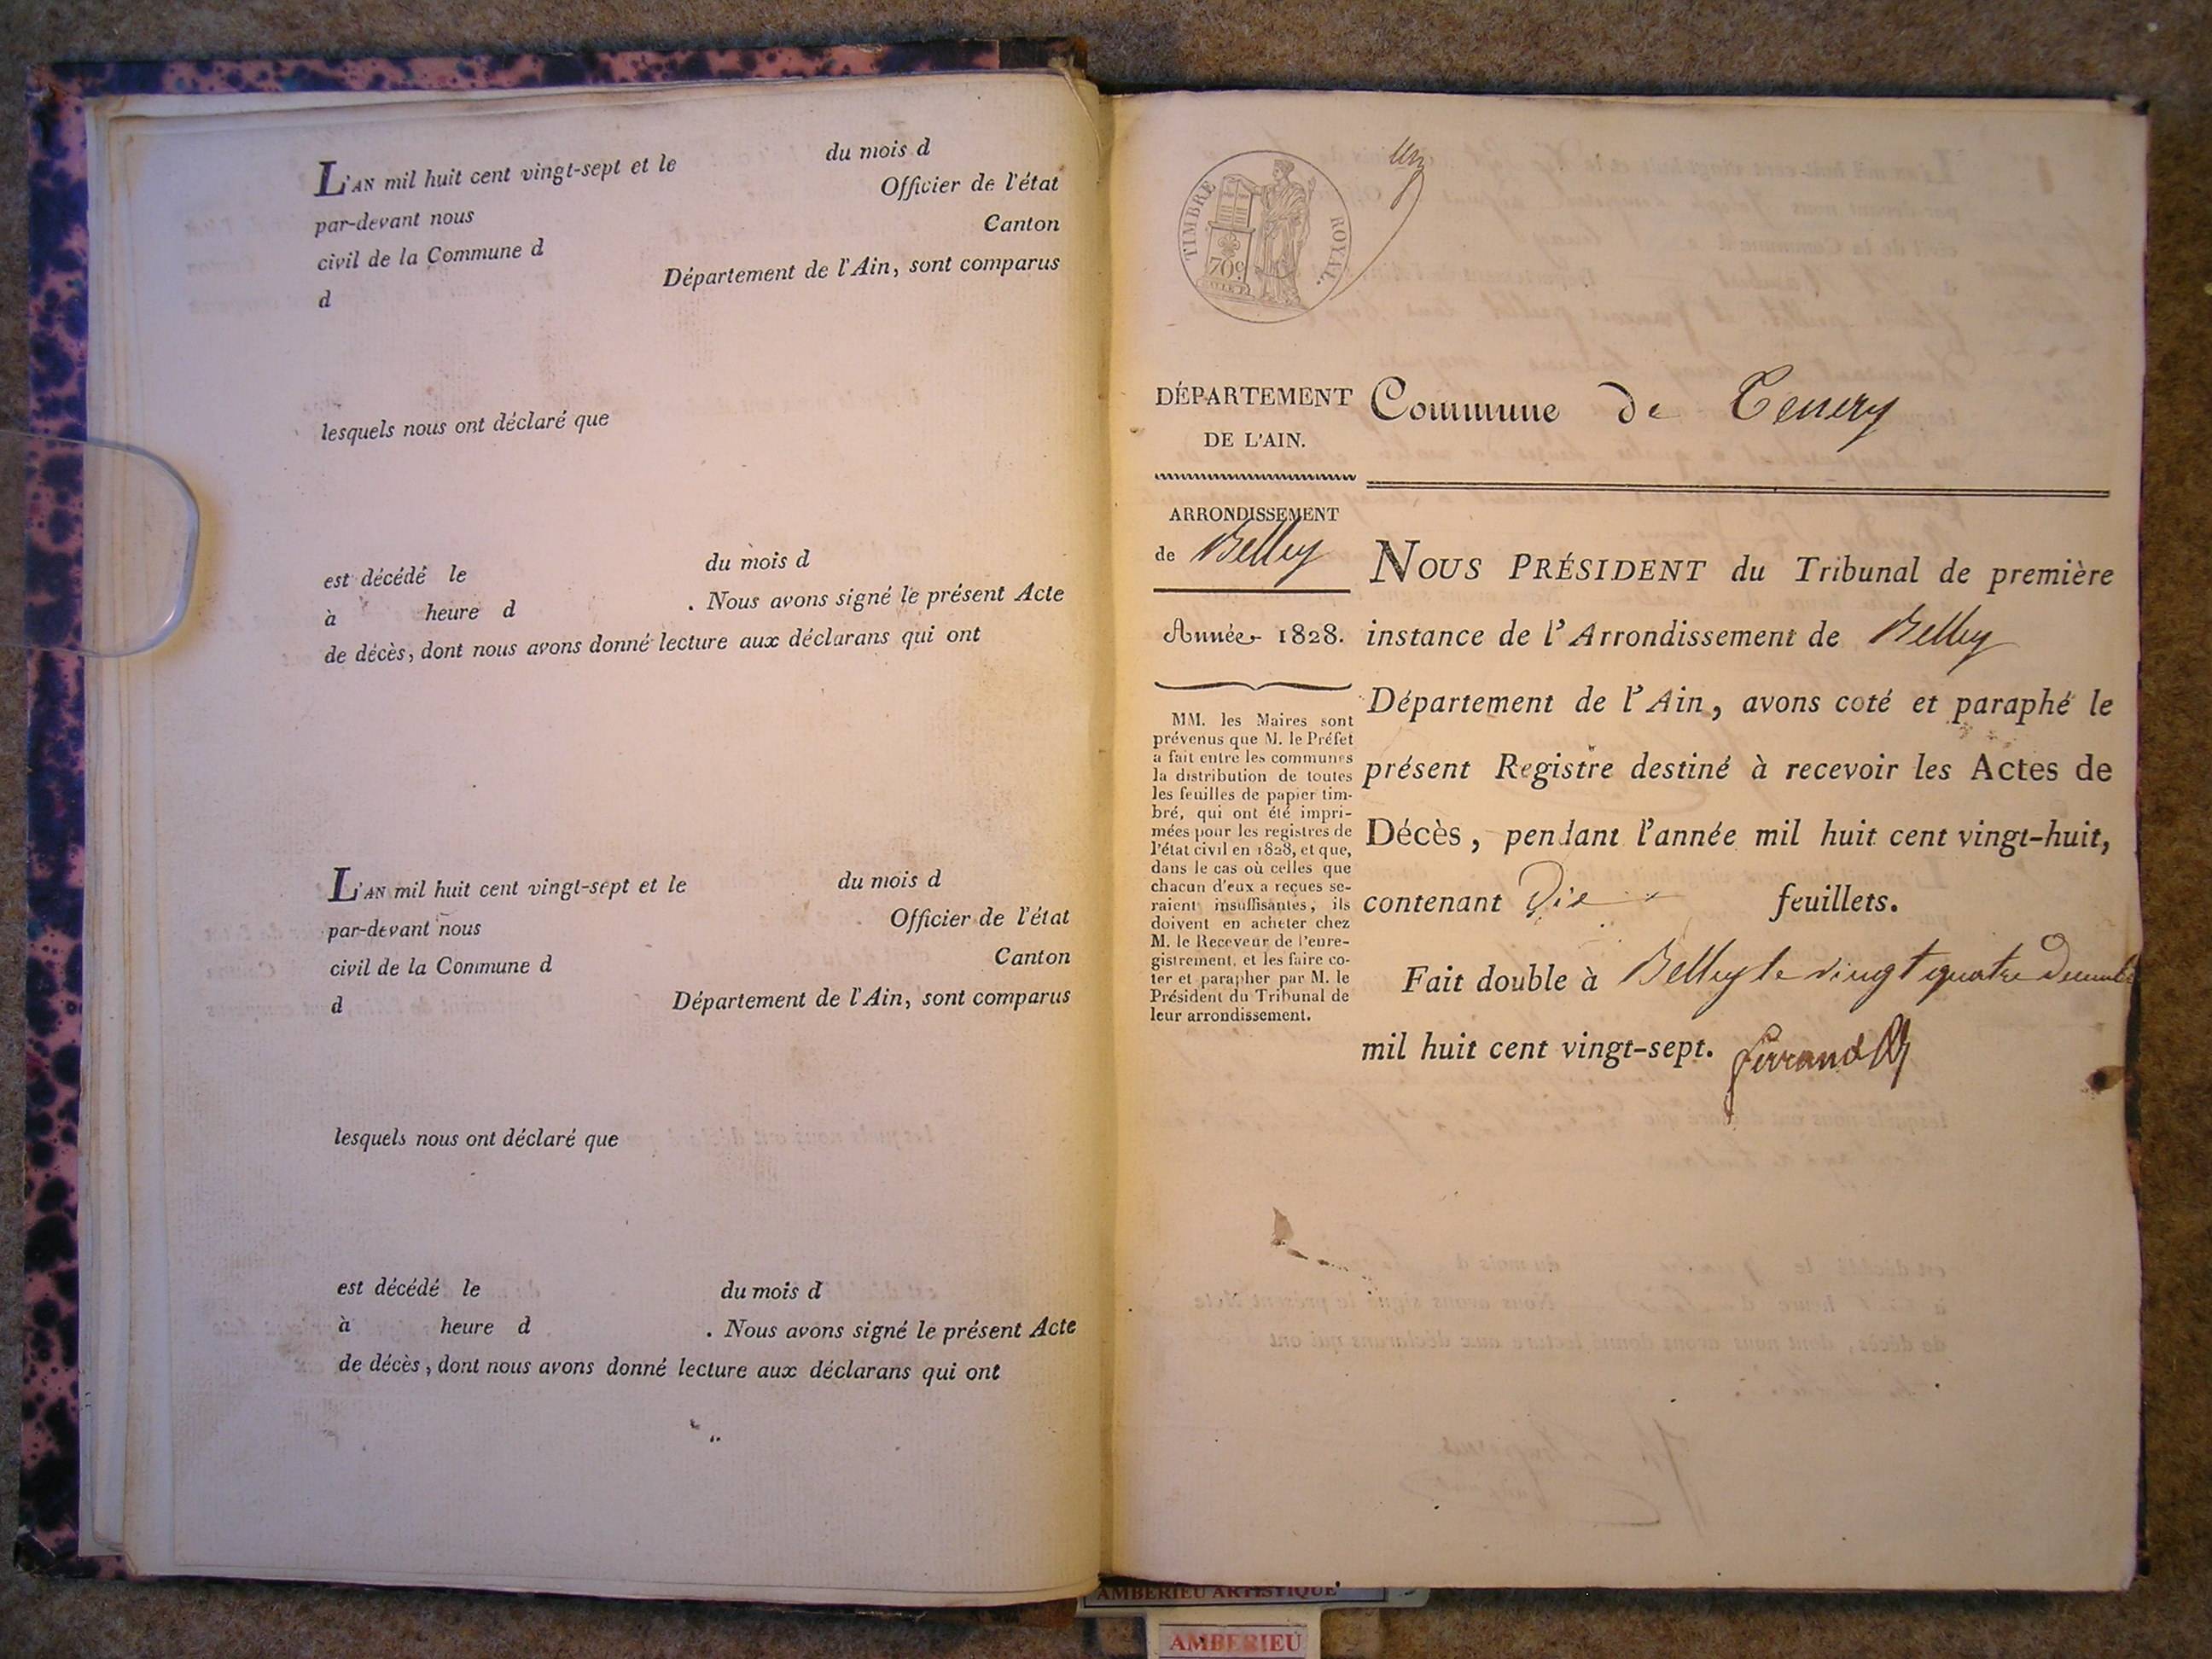 L'AN mil huit cent vingt-sept et le du mois d
par-devant nous Officier de l'état
civil de la Commune d Canton
d Département de l'Ain, sont comparus
lesquels nous ont déclaré que
est décédé le du mois d
à heure d . Nous avons signé le présent Acte
de décès, dont nous avons donné lecture aux déclarans qui ont
L'AN mil huit cent vingt-sept et le du mois d
par-devant nous Officier de l'état
civil de la Commune d Canton
d Département de l'Ain, sont comparus
lesquels nous ont déclaré que
est décédé le du mois d
à heure d . Nous avons signé le présent Acte
de décès, dont nous avons donné lecture aux déclarans qui ont
TIMBRE ROYAL.
70c.
DÉPARTEMENT
DE L'AIN.
ARRONDISSEMENT
de Belley
Année 1828.
MM. les Maires sont
prévenus que M. le Préfet
a fait entre les communes
la distribution de toutes
les feuilles de papier tim-
bré, qui ont été impri-
mées pour les registres de
l'état civil en 1828, et que,
dans le cas où celles que
chacun d'eux a reçues se-
raient insuffisantes, ils
doivent en acheter chez
M. le Receveur de l'enre-
gistrement, et les faire co-
ter et parapher par M. le
Président du Tribunal de
leur arrondissement.
Commune de
NOUS PRÉSIDENT du Tribunal de première
instance de l'Arrondissement de Belley
Département de l'Ain, avons coté et paraphé le
présent Registre destiné à recevoir les Actes de
Décès, pendant l'année mil huit cent vingt-huit,
contenant Dix feuillets.
Fait double à Belley le vingt quatre Décembre
mil huit cent vingt-sept. Ferrand
AMBERIEU ARTISTIQUE
AMBERIEU